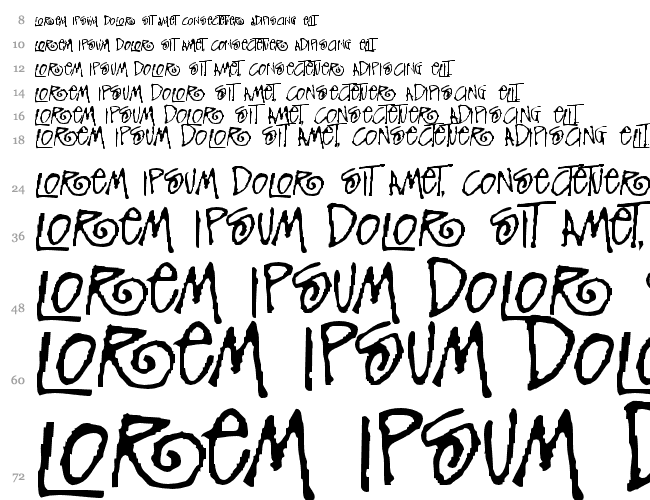 8 Lorem ipsum dolor sit amet, consectetuer adipiscing elit
10 Lorem ipsum dolor sit amet, consectetuer adipiscing elit
12 Lorem ipsum dolor sit amet, consectetuer adipiscing elit
14 Lorem ipsum dolor sit amet, consectetuer adipiscing elit
16 Lorem ipsum dolor sit amet, consectetuer adipiscing elit
18 Lorem ipsum dolor sit amet, consectetuer adipiscing elit
24 Lorem ipsum dolor sit amet, consectetuer
36 Lorem ipsum dolor sit amet,
48 Lorem ipsum dolor
60 Lorem ipsum Dol
72 Lorem ipsum